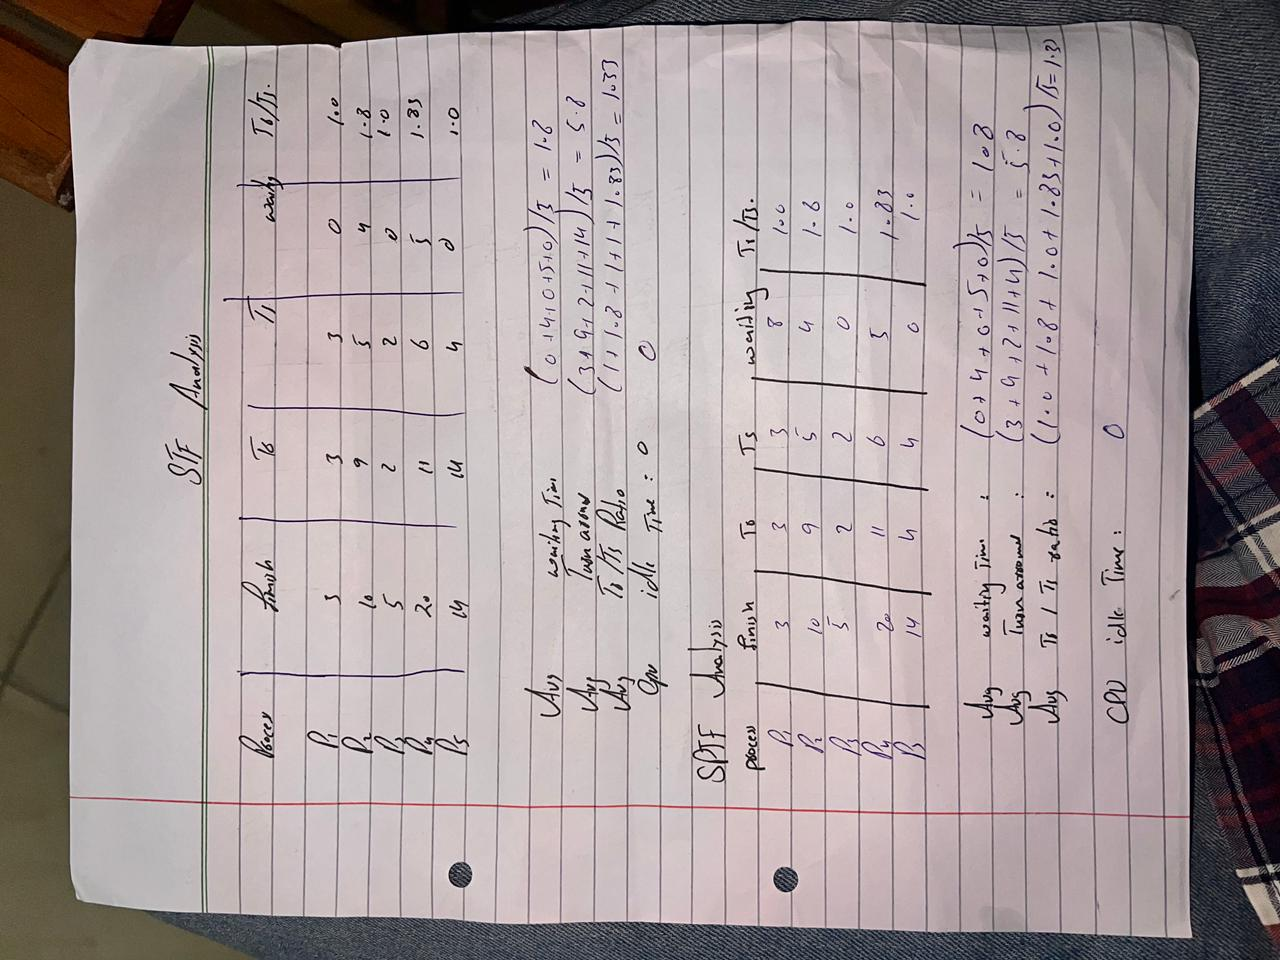 STF Analysis
Process | Finish | Tr | Ts | waiting | Tr/Ts.
P1 | 3 | 3 | 3 | 0 | 1.0
P2 | 10 | 9 | 5 | 4 | 1.8
P3 | 5 | 2 | 2 | 0 | 1.0
P4 | 20 | 11 | 6 | 5 | 1.83
P5 | 14 | 14 | 4 | 0 | 1.0
Avg waiting Time (0+4+0+5+0)/5 = 1.8
Avg Turn around (3+9+2+11+14)/5 = 5.8
Avg Tr/Ts Ratio (1+1.8+1+1+1.83)/5 = 1.33
Cpu idle Time : 0 0
SRTF Analysis
process | finish | Tr | Ts | waiting | Tr/Ts.
P1 | 3 | 3 | 3 | 8 | 1.0
P2 | 10 | 9 | 5 | 4 | 1.8
P3 | 5 | 2 | 2 | 0 | 1.0
P4 | 20 | 11 | 6 | 5 | 1.83
P5 | 14 | 4 | 4 | 0 | 1.0
Avg waiting Time : (0+4+0+5+0)/5 = 1.8
Avg Turn around : (3+9+2+11+4)/5 = 5.8
Avg Tr / Ts ratio : (1.0+1.8+1.0+1.83+1.0)/5=1.3
CPU idle Time : 0